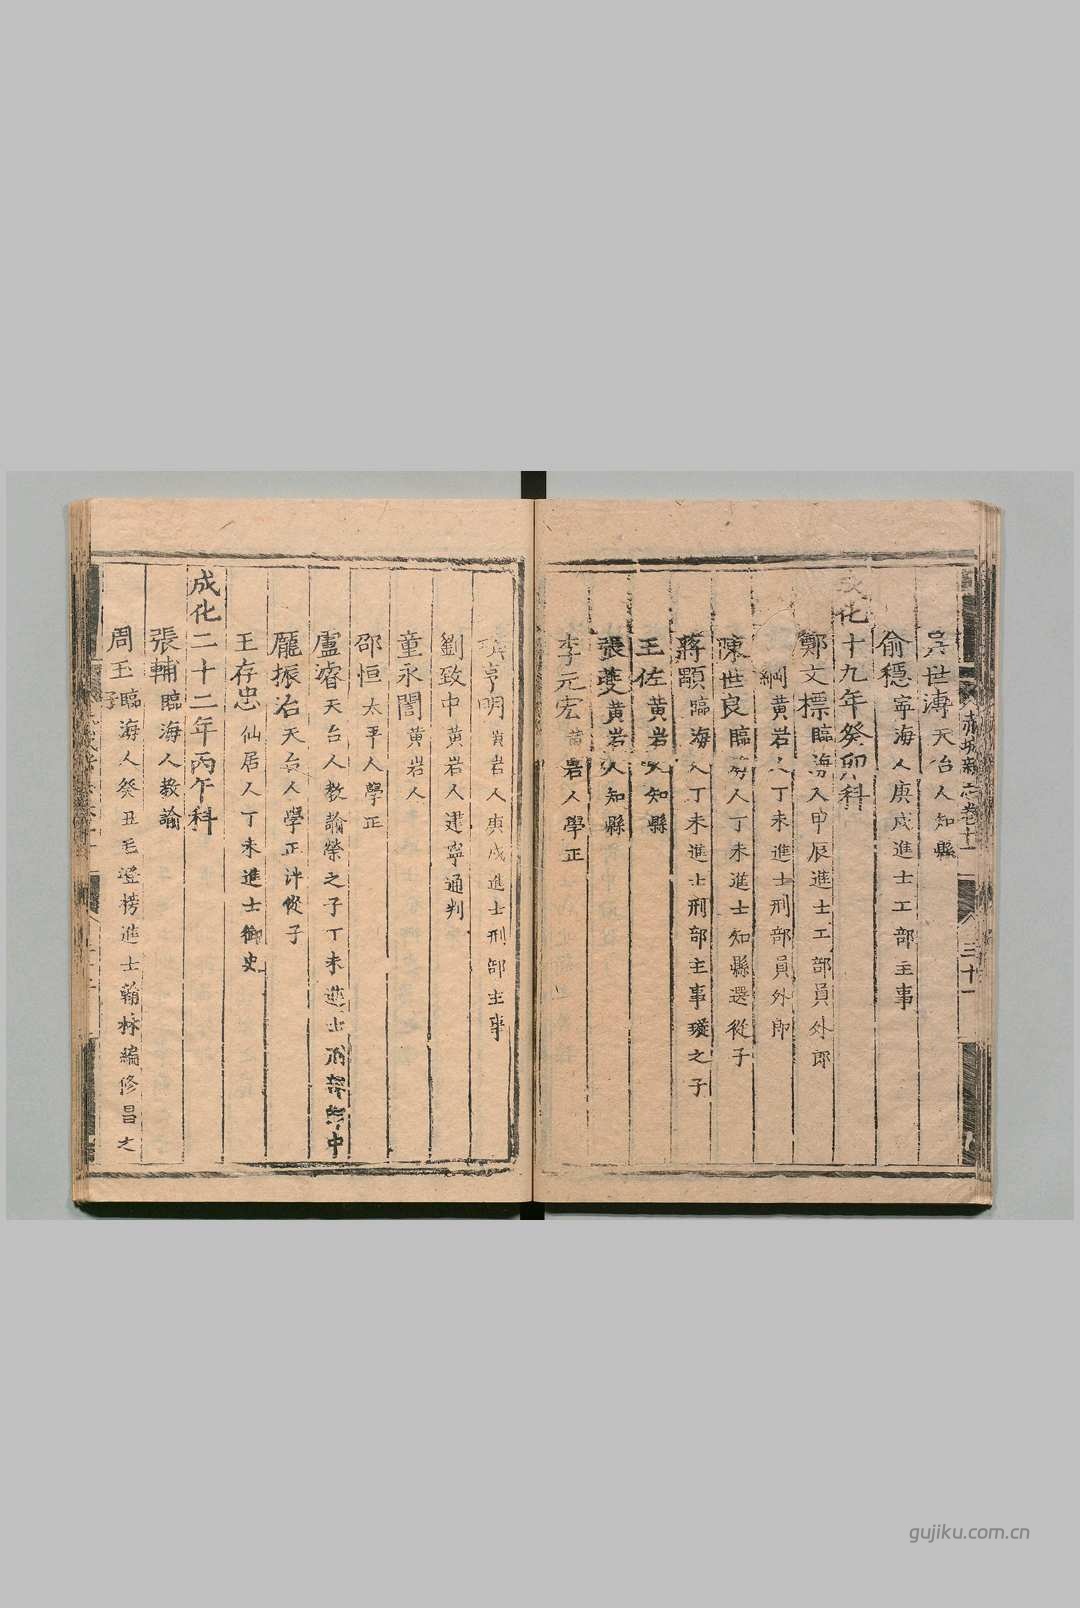 赤城新志卷十一 三十一
吳世溥天台人知縣
俞穩寧海人庚戌進士工部主事
成化十九年癸卯科
鄭文標臨海人甲辰進士工部員外郎
綱黃岩人丁未進士刑部員外郎
陳世良臨海人丁未進士知縣選從子
蔣顒臨海人丁未進士刑部主事璇之子
王佐黃岩人知縣
張夔黃岩人知縣
李元宏黃岩人學正
亨明黃岩人庚戌進士刑部主事
劉致中黃岩人建寧通判
童永誾黃岩人
邵恒太平人學正
盧濬天台人教諭榮之子丁未進士郎中
龐振治天台人學正泮從子
王存忠仙居人丁未進士御史
成化二十二年丙午科
張輔臨海人教諭
周玉臨海人癸丑毛澄榜進士翰林編修昌之子
gujiku.com.cn